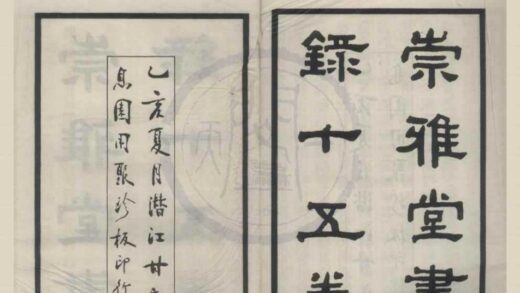 崇雅堂書
錄十五卷
乙亥夏月潛江甘
息園用聚珍板印行